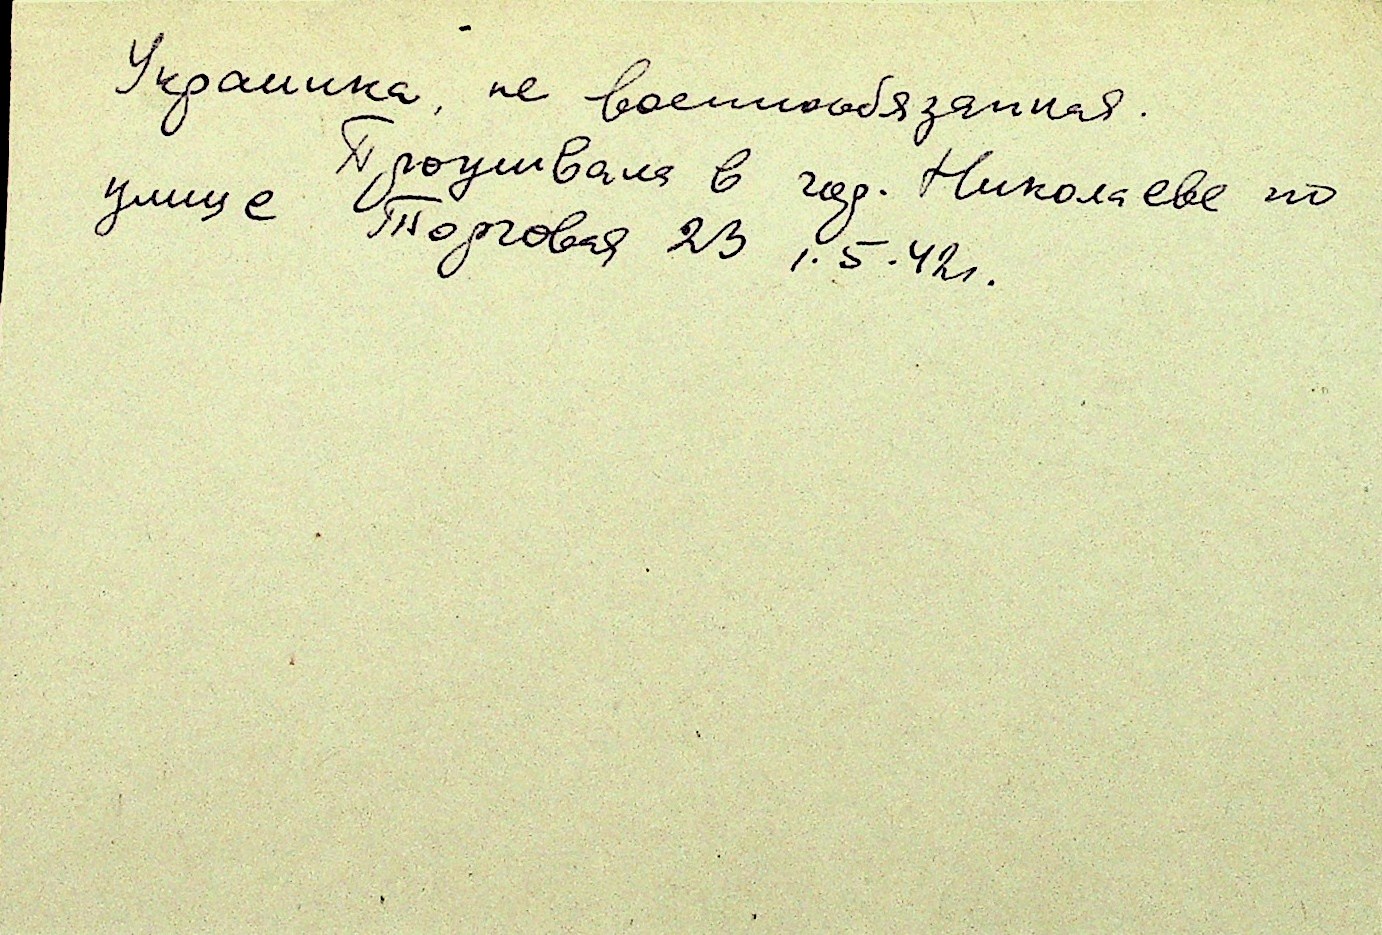 Украинка, не военнообязанная.
Проживала в гор. Николаеве по
улице Торговая 23 1.5.42г.